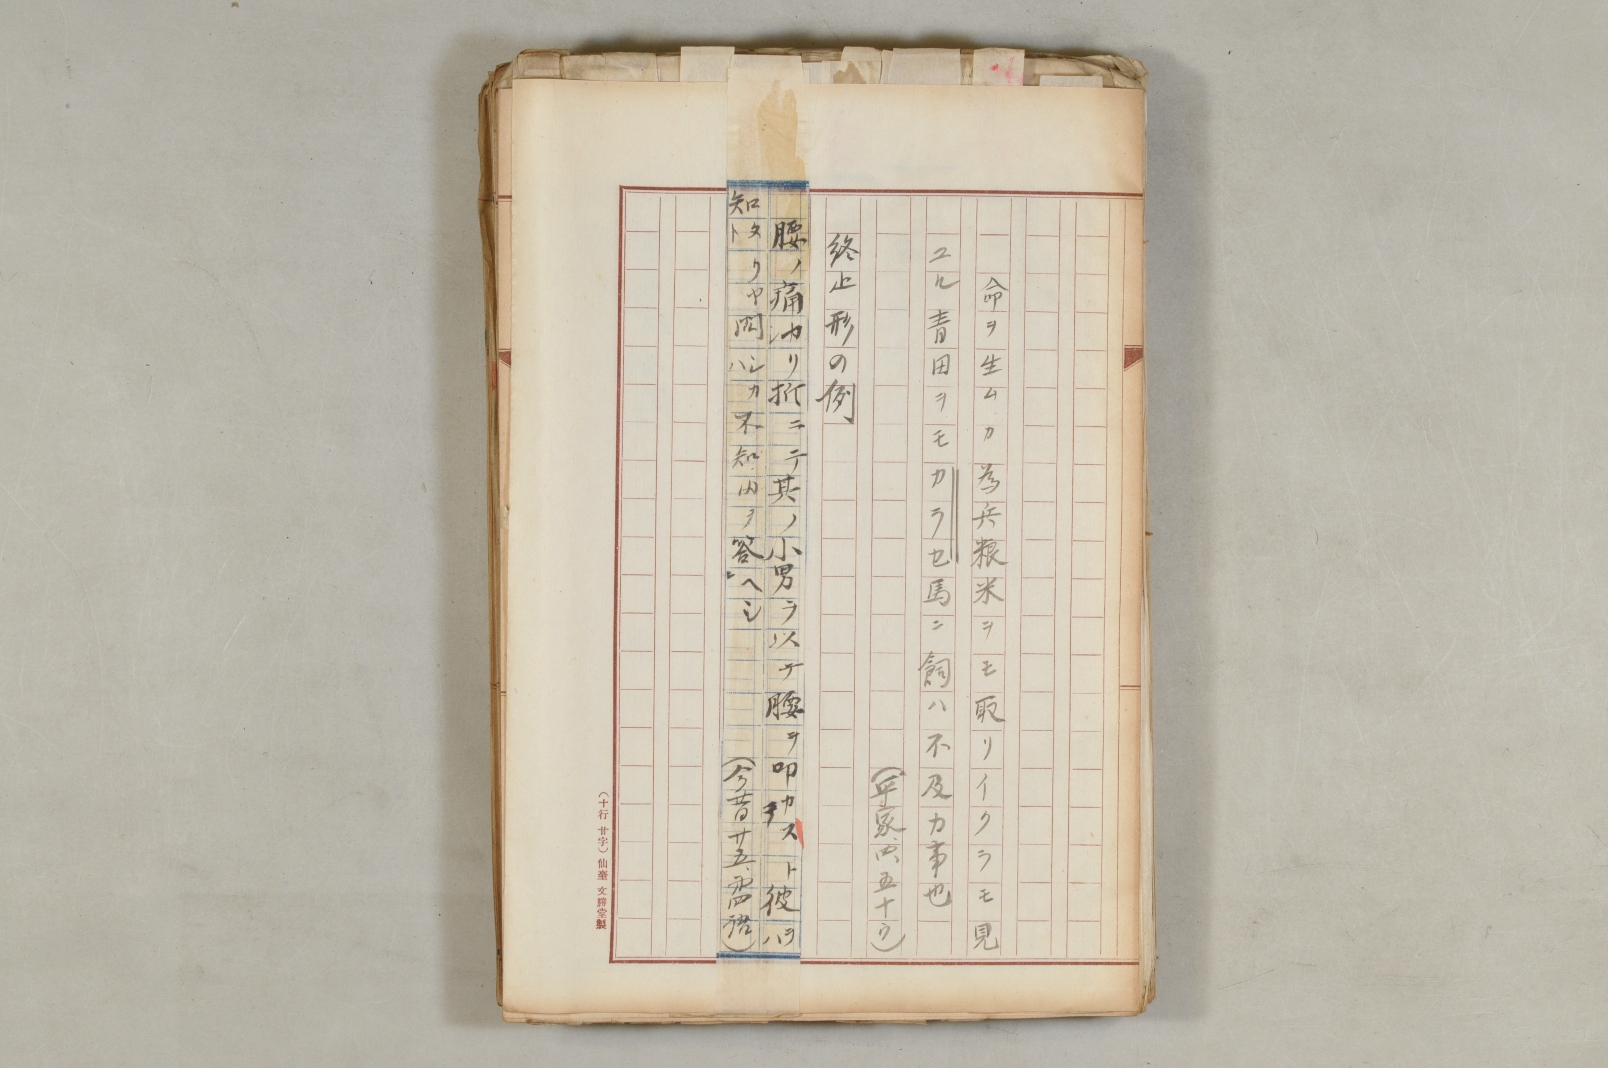 命ヲ生ムカ為兵粮米ヲモ取リイクラモ見
ユル青田ヲモカラセ馬ニ飼ハ不及力事也
(平家、四、五十ウ)
終止形の例
腰ノ痛カリ折ニテ其ノ小男ヲ以テ腰ヲ叩カスト彼ハラ
知タリヤ問ハシカ不知由ヲ答ヘシ
(十行廿字)仙臺 文勝堂製